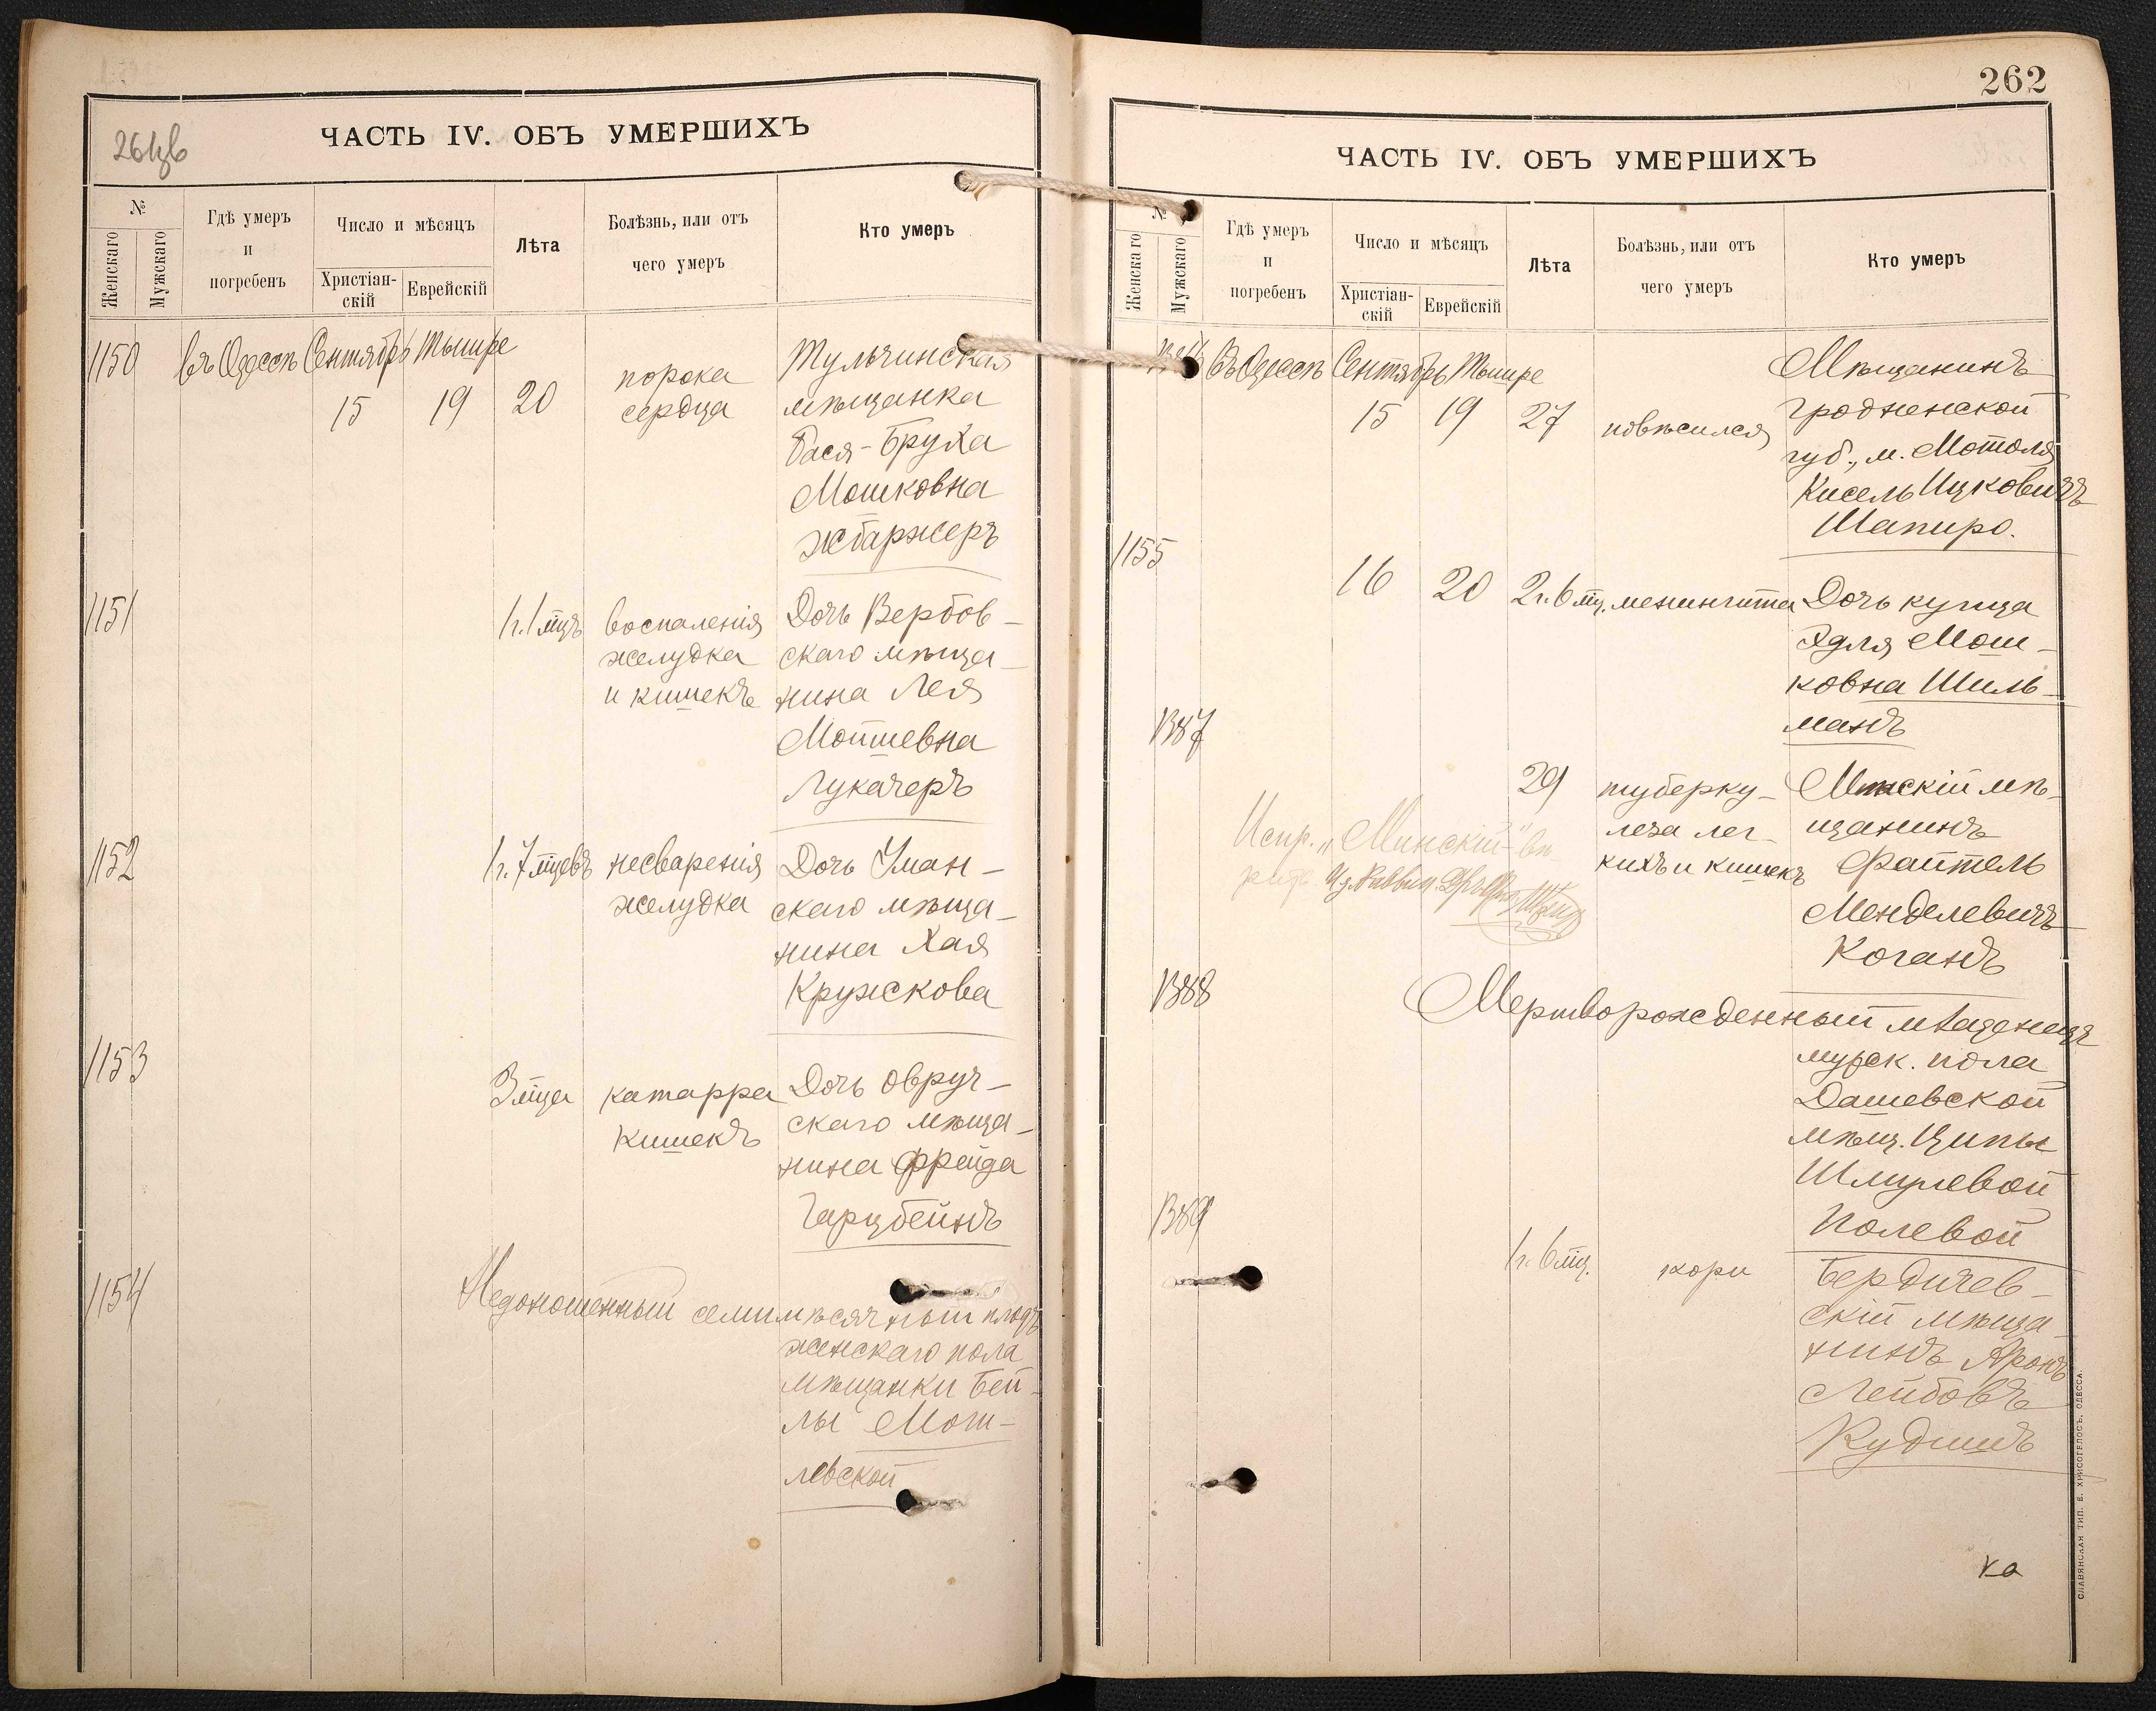 261зв
ЧАСТЬ IV. ОБЪ УМЕРШИХЪ
№
Женскаго
Мужскаго
Гдѣ умеръ
и
погребенъ
Число и мѣсяцъ
Христіан-
скій
Еврейскій
Лѣта
Болѣзнь, или отъ
чего умеръ
Кто умеръ
1150
въ Одессѣ
Сентябрь
Тышре
15
19
20
порока
сердца
Тульчинская
мѣщанка
Бася-Бруха
Мошковна
Жбаржеръ
1151
1г. 1 мцъ
воспаленія
желудка
и кишекъ
Дочь Вербов-
скаго мѣща-
нина Лея
Мотшевна
Лукачеръ
1152
1г. 7 мцевъ
несваренія
желудка
Дочь Уман-
скаго мѣща-
нина Хая
Кружскова
1153
3 мца
катарра
кишекъ
Дочь Овруч-
скаго мѣща-
нина Фрейда
Гарцбейнъ
1154
Недоношенный семимѣсячный плодъ
женскаго пола
мѣщанки Бей-
лы Мог-
левской
262
ЧАСТЬ IV. ОБЪ УМЕРШИХЪ
№
Женскаго
Мужскаго
Гдѣ умеръ
и
погребенъ
Число и мѣсяцъ
Христіан-
скій
Еврейскій
Лѣта
Болѣзнь, или отъ
чего умеръ
Кто умеръ
Въ Одессѣ
Сентябрь
Тышре
15
19
27
повѣсился
Мѣщанинъ
Гродненской
губ., м. Мотоля
Кисель Ицковичъ
Шапиро.
1155
16
20
2г. 6 мц.
менингита
Дочь купца
Эдля Мош-
ковна Шиль-
манъ
1387
29
туберку-
леза лег-
кихъ и кишекъ
Минскій мѣ-
щанинъ
Файтель
Менделевичъ
Коганъ
Испр. „Минскій" вѣ-
1388
Мертворожденный младенецъ
мужск. пола
Дашевской
мѣщ. Ципы
Шмулевой
Полевой
1389
1г. 6 мц.
кори
Бердичев-
скій мѣща-
нинъ Аронъ
Лейбовъ
Кудишъ
ка
СЛАВЯНСКАЯ ТИП. Е. ХРИСОГЕЛОСЪ, ОДЕССА.